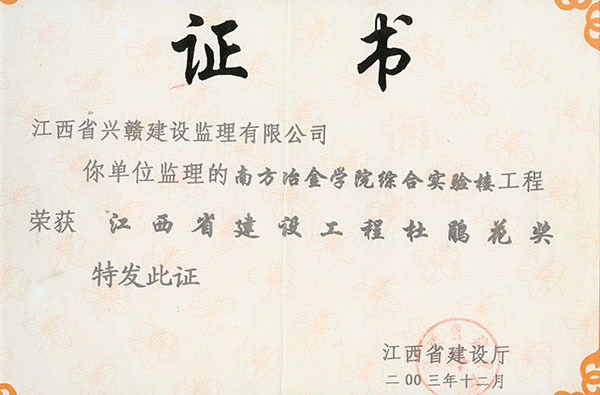 证 书
江西省兴赣建设监理有限公司
你单位监理的南方冶金学院综合实验楼工程
荣获 江西省建设工程杜鹃花奖
特发此证
江西省建设厅
二00三年十二月